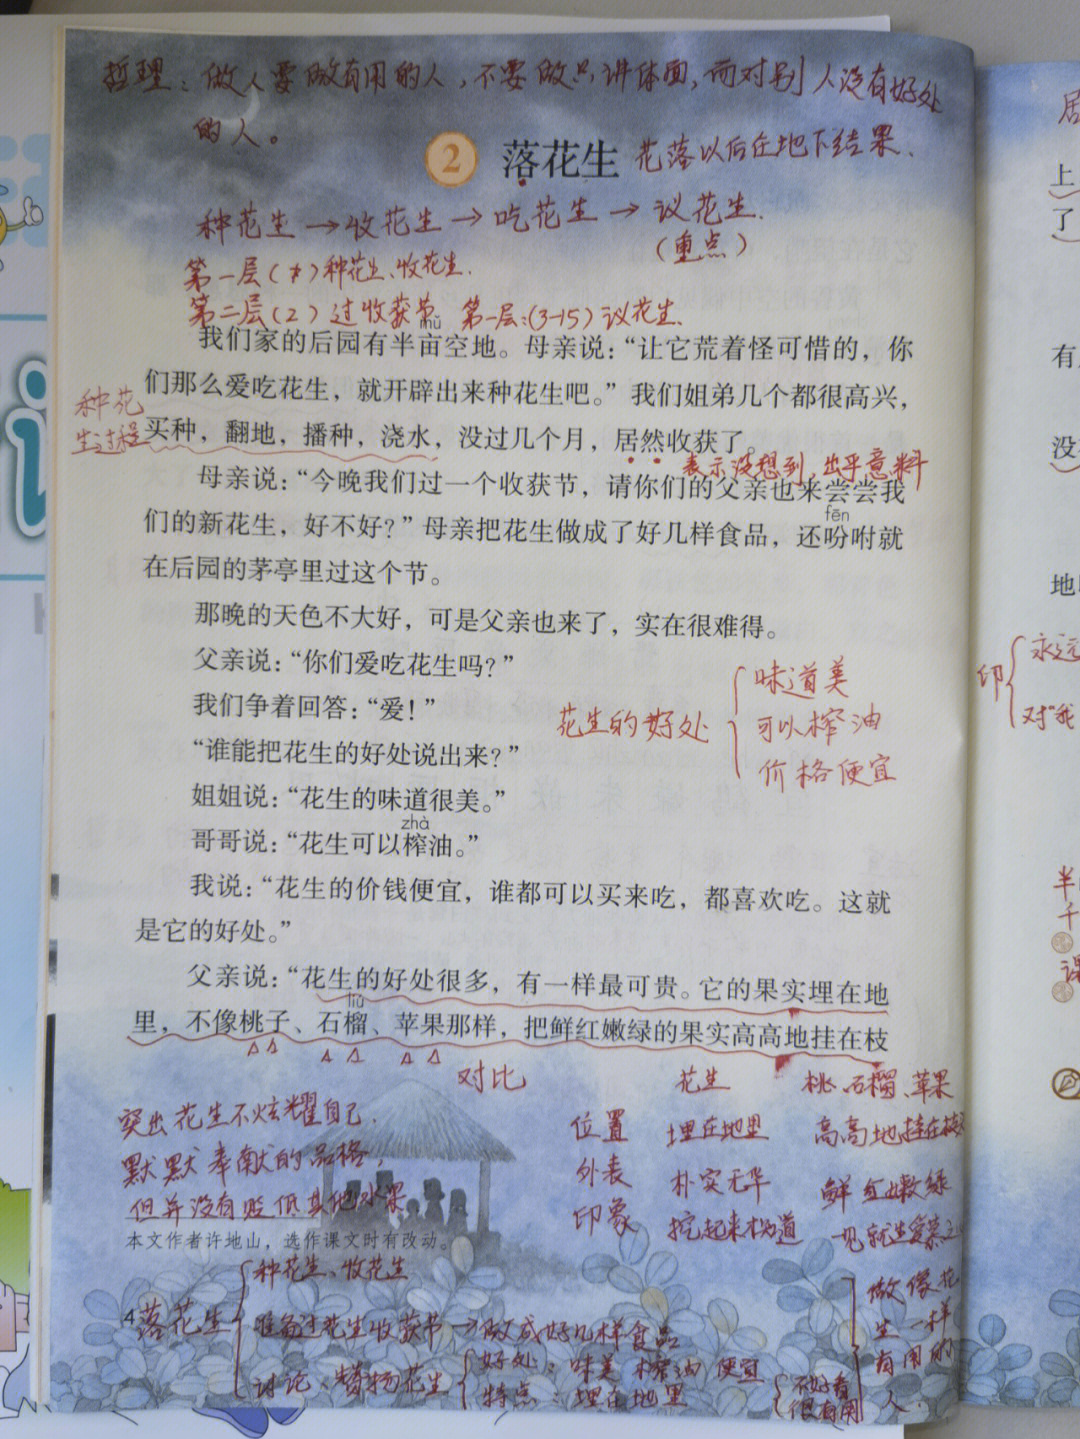 哲理：做人要做有用的人，不要做只讲体面，而对别人没有好处
的人。
2 落花生 花落以后在地下结果.
种花生→收花生→吃花生→议花生.
(重点)
第一层(1)种花生、收花生.
第二层(2)过收获节 第一层:(3-15)议花生.
mǔ
我们家的后园有半亩空地。母亲说：“让它荒着怪可惜的，你
们那么爱吃花生，就开辟出来种花生吧。”我们姐弟几个都很高兴，
种花
生过程
买种，翻地，播种，浇水，没过几个月，居然收获了。
表示没想到,出乎意料
母亲说：“今晚我们过一个收获节，请你们的父亲也来尝尝我
fēn
们的新花生，好不好？”母亲把花生做成了好几样食品，还吩咐就
在后园的茅亭里过这个节。
那晚的天色不大好，可是父亲也来了，实在很难得。
父亲说：“你们爱吃花生吗？”
我们争着回答：“爱！”
“谁能把花生的好处说出来？”
花生的好处
味道美
可以榨油
价格便宜
姐姐说：“花生的味道很美。”
zhà
哥哥说：“花生可以榨油。”
我说：“花生的价钱便宜，谁都可以买来吃，都喜欢吃。这就
是它的好处。”
父亲说：“花生的好处很多，有一样最可贵。它的果实埋在地
liú
里，不像桃子、石榴、苹果那样，把鲜红嫩绿的果实高高地挂在枝
对比 花生 桃、石榴、苹果
位置 埋在地里 高高地挂在枝
外表 朴实无华 鲜红嫩绿
印象 挖起来才知道 一见就生爱慕之
突出花生不炫耀自己,
默默奉献的品格,
但并没有贬低其他水果
本文作者许地山，选作课文时有改动。
4
落花生
种花生、收花生
准备过花生收获节→做成好几样食品
讨论、赞扬花生
好处：味美 榨油 便宜
特点：埋在地里
不好看
很有用
做像花
生一样
有用的
人.
居
上
了
有
没
地
印
永远
对“我
半
千
课